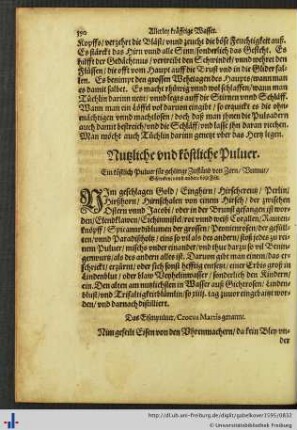 590 Allerley kräfftige Wasser.
Kopffs/ verzehrt die Bläst/ vnnd zeucht die böse Feuchtigkeit auß.
Es stärckt das Hirn vnnd alle Sinn/ sonderlich das Gesicht. Es
hilfft der Gedächtnus/ vertreibt den Schwindel/ vnnd wehret den
Flüssen/ die offt vom Haupt auff die Brust vnnd in die Glider fal-
len. Es benimpt den grossen Wehetagen des Haupts/ wann man
es damit salbet. Es macht rhüwig vnnd wol schlaffen/ wann man
Tüchlin darinn netzt/ vnnd legts auff die Stirnen vnnd Schläff.
Wann man ein Löffel vol darvon eingibt/ so erquickt es die ohn-
mächtigen vnnd machtlosen/ doch daß man jhnen die Pulsadern
auch damit bestreich/ vnnd die Schläff/ vnnd lasse jhn daran riechen.
Man möcht auch Tüchlin darinn genetzt vber das Hertz legen.
Nutzliche vnd köstliche Puluer.
Ein köstlich Puluer für gehlinge Zuständ von Zorn/
NIm geschlagen Gold/ Einghirn/ Hirschcreutz/ Perlin/
Hirßhorn/ Hirnschalen von einem Hirsch/ der zwischen
Ostern vnnd Jacobi/ oder in der Brunst gefangen ist wor-
den/ Elendklawen/ Eichinmistel/ rot vnnd weiß Corallen/
knöpff/ Spicanardiblumen der grossen/ Peonienrosen/ der gefüll-
ten/ vnnd Paradißholtz/ eins so vil als des andern/ stoß jedes zu rei-
nem Puluer/ misch vnder einander/ vnd thue darzu so vil
als des andern alles ist. Darvon gibt man einem/ das er-
schrickt/ erzürnt/ oder sich sonst hefftig ereifert/ einer Erbis groß in
Lindenblust/ oder blaw Veyhelinwasser/ sonderlich den Kindern/
ein. Den alten am nutzlichsten in Wasser auß Gichtrosen/ Linden-
blust/ vnd Trifaltigkeitblümlin/ so tag zuuor eingebaitzt wor-
den/ vnd darnach distilliert.
Das Eisenpuluer/ Crocus Martis genannt.
Nim gefeilt Eisen von den Vhrenmachern/ da kein Bley vn-
der
http://dl.ub.uni-freiburg.de/diglit/gabelkover1595/0832
© Universitätsbibliothek Freiburg